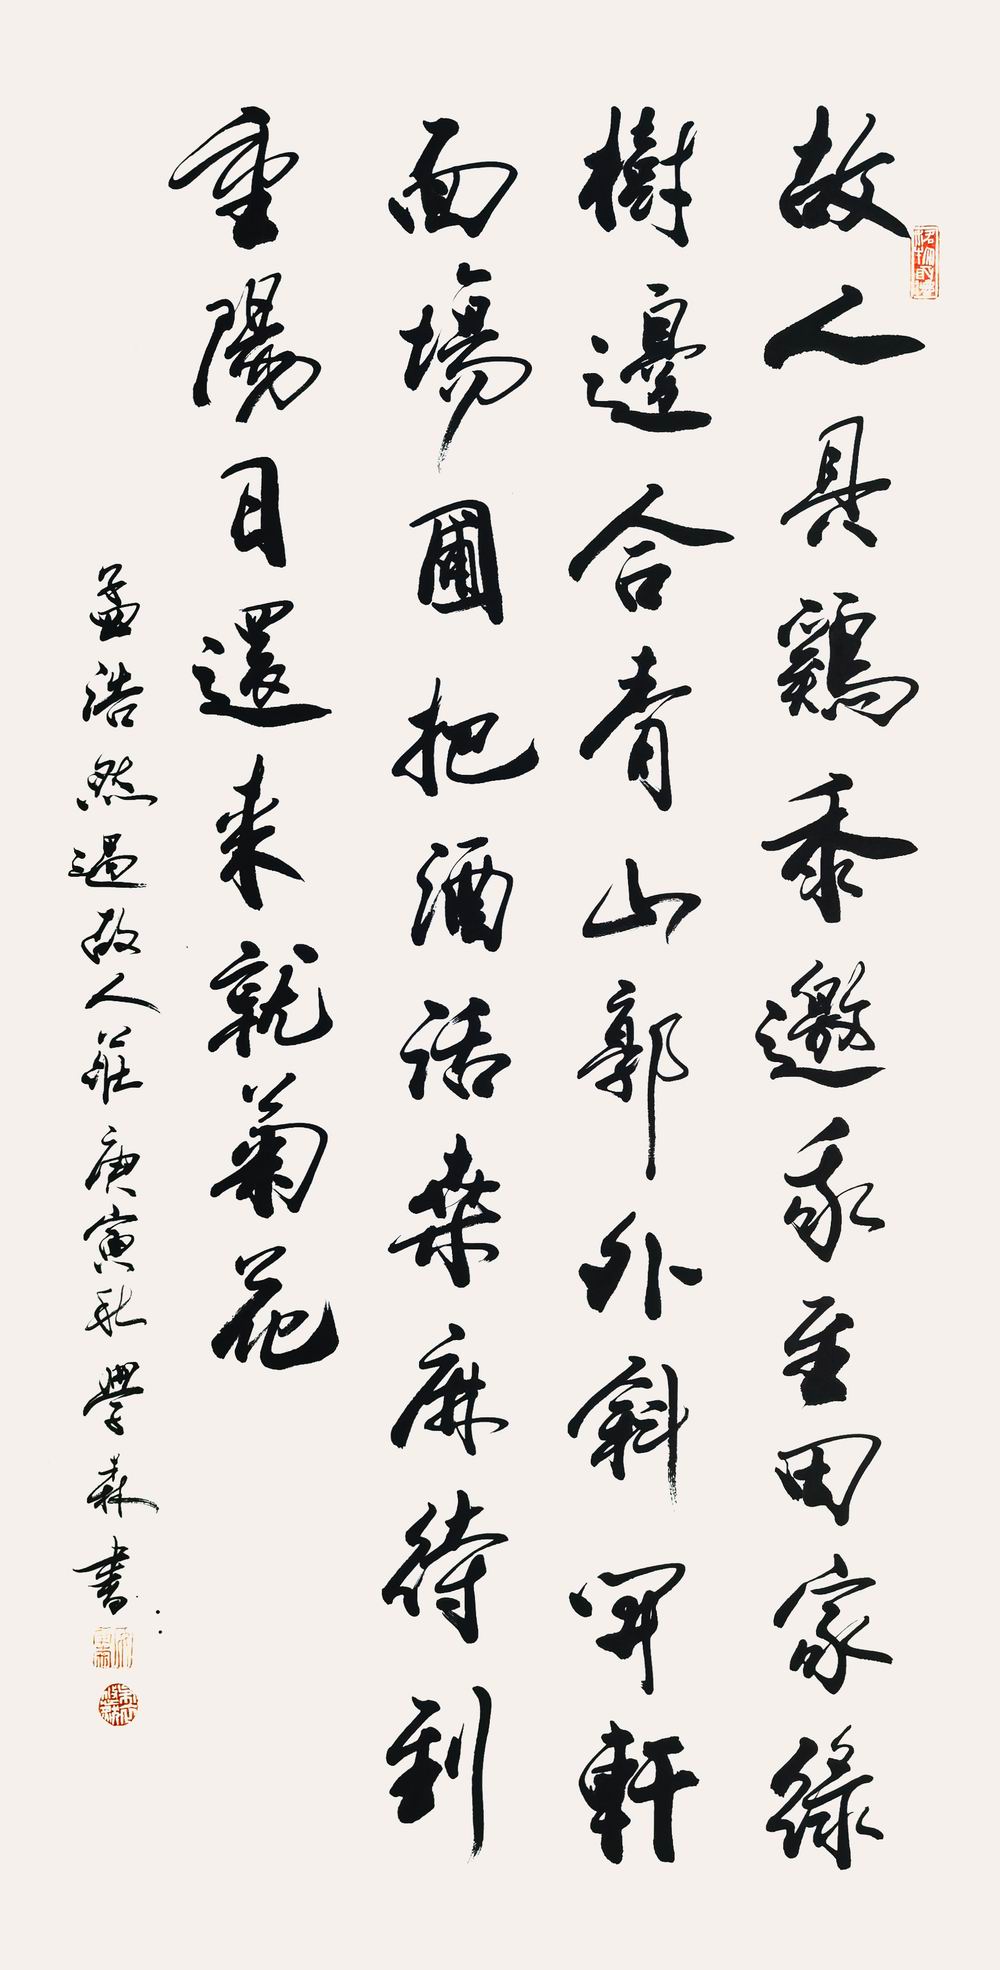 故人具鷄黍邀我至田家綠
樹邊合青山郭外斜開軒
面場圃把酒話桑麻待到
重陽日還来就菊花
孟浩然過故人莊庚寅秋學森書